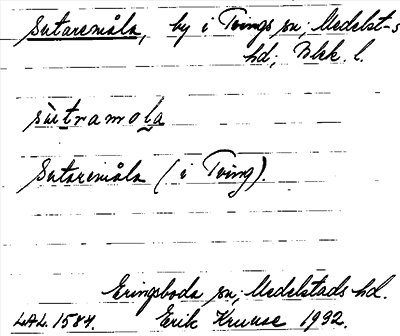 Sutaremåla, by i Tvings sn; Medelst-s
hd; Blek. l.
sùtramola
Sutaremåla (i Tving).
Eringsboda sn, Medelstads hd.
L.A.L. 1584. Erik Kruuse 1932.